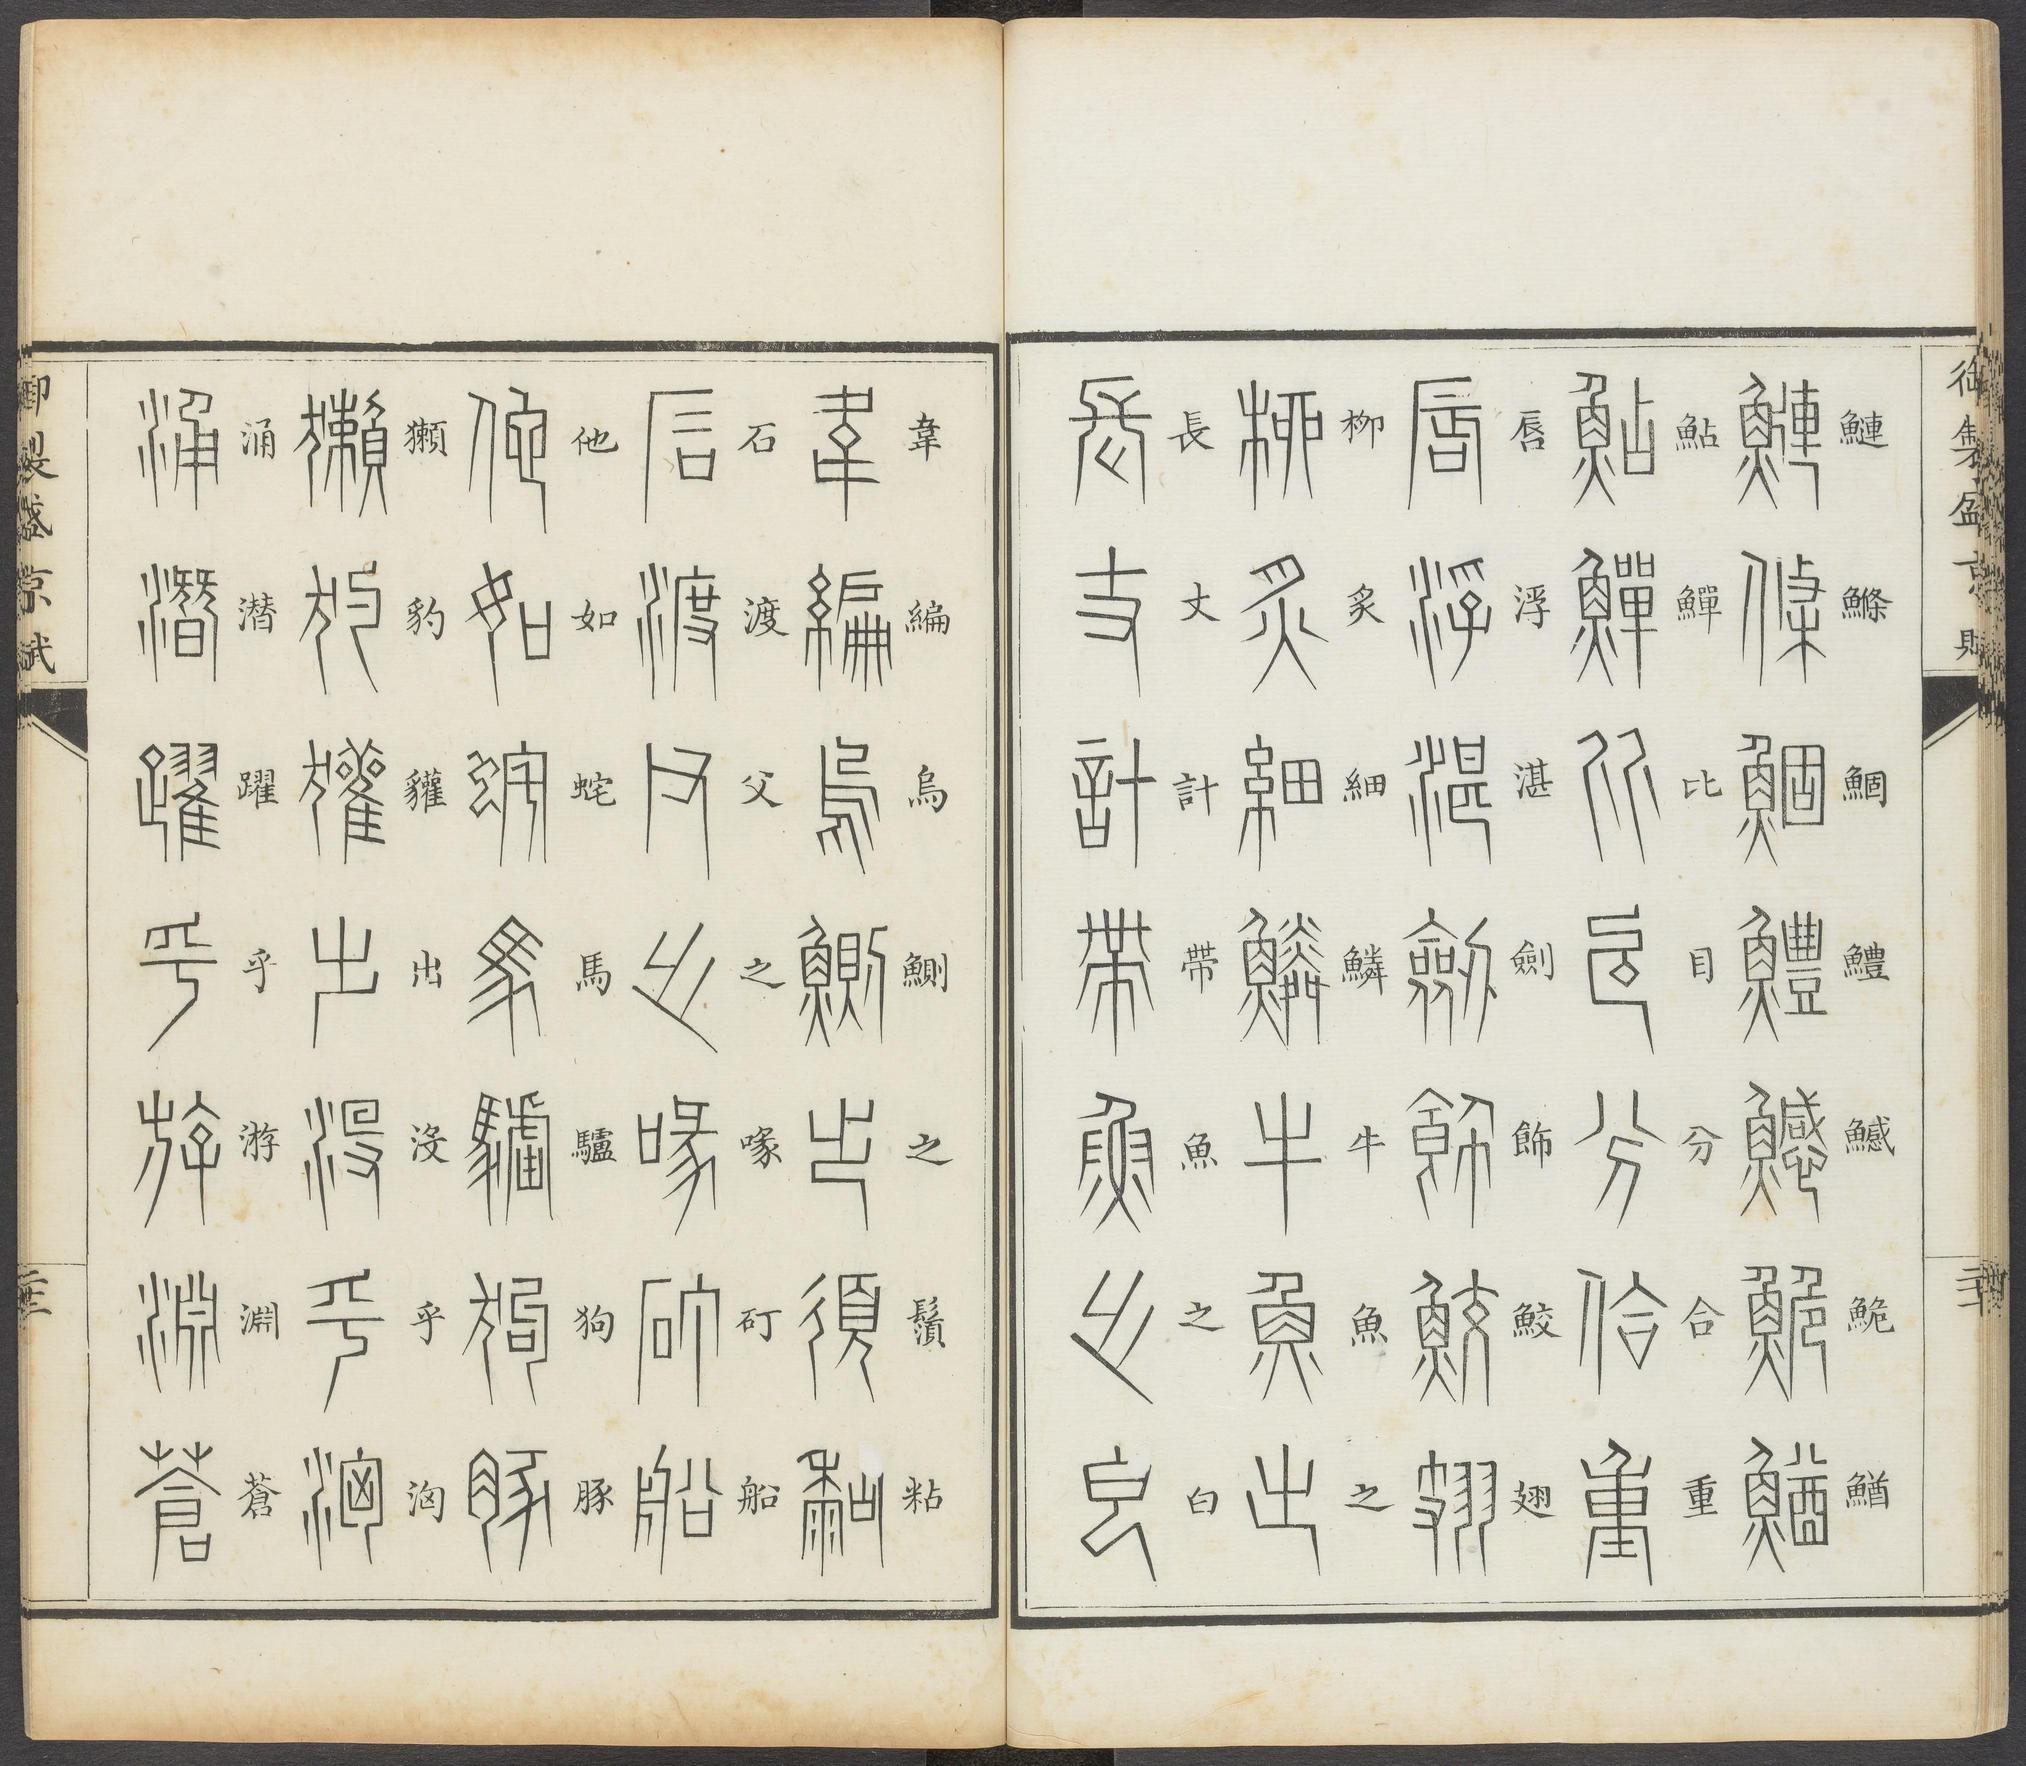 鰱鰷鯝鱧鱤鮠鰌
鮎鱓比目分合重
唇浮湛劍飾鮫翅
柳炙細鱗牛魚之
長丈計帶魚之白
韋編烏鰂之鬚粘
石渡父之喙矴船
他如蛇馬驢狗豚
獺豹貛出沒乎洶
涌潛躍乎游淵蒼
御製盛京賦
御製盛京賦